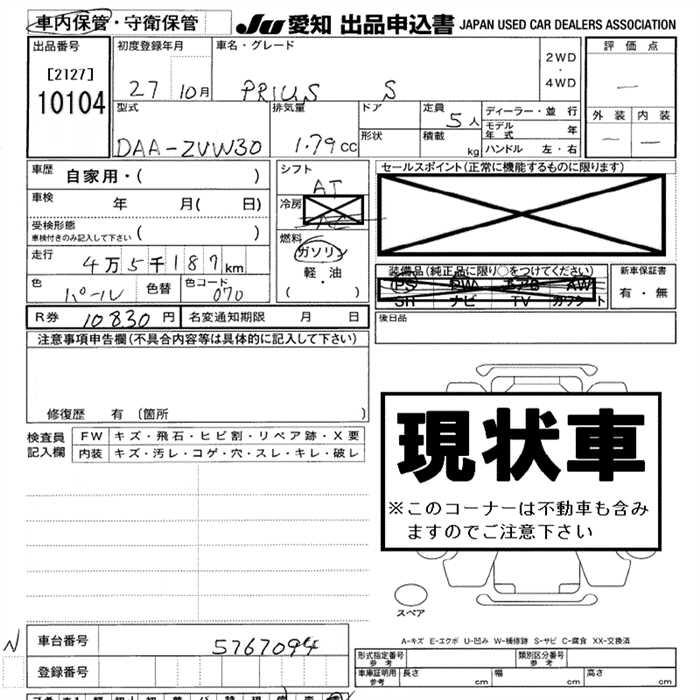 車内保管・守衛保管
JU 愛知 出品申込書 JAPAN USED CAR DEALERS ASSOCIATION
出品番号
[2127]
10104
初度登録年月
27 10月
車名・グレード
PRIUS S
2WD
・
4WD
評価点
―
外装 内装
― ―
型式
DAA-ZVW30
排気量
1.79cc
ドア
形状
定員
5人
積載
kg
ディーラー・並行
モデル年式 年
ハンドル 左・右
車歴 自家用・( )
車検 年 月( 日)
受検形態
車検付きのみ記入して下さい ( )
走行 4万5千187km
色 パール 色替 色コード 070
シフト
AT
冷房
AC
燃料
ガソリン
軽・油
( ・ )
セールスポイント(正常に機能するものに限ります)
装備品(純正品に限り○をつけてください)
PS PW エアB AW
SH ナビ TV カワシート
新車保証書
有・無
R券 10830円 名変通知期限 月 日
後日品
注意事項申告欄(不具合内容等は具体的に記入して下さい)
修復歴 有(箇所 )
検査員
記入欄
FW キズ・飛石・ヒビ割・リペア跡・X要
内装 キズ・汚レ・コゲ・穴・スレ・キレ・破レ
現状車
※このコーナーは不動車も含み
ますのでご注意下さい
スペア
A-キズ E-エクボ U-凹み W-補修跡 S-サビ C-腐食 XX-交換済
N
車台番号 5767094
登録番号
形式指定番号
参考
類別区分番号
参考
車庫証明用
参考
長さ cm 幅 cm 高さ cm